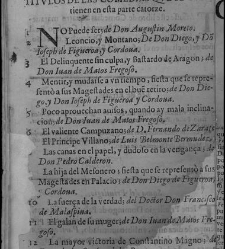 TITVLOS DE LAS COMEDIAS QVE
tienen en esta parte catorze.
1 NO puede ser; de Don Agustin Moreto.
2 Leoncio, y Montano; De Don Diego, y Dō
Ioseph de Figueroa, y Cordoua.
3 El Delinquente sin culpa, y Bastardo de Aragon; de
Don Iuan de Matos Fregoso.
4 Mentir, y mudarse a vn tiempo, fiesta que se repre-
sentò a sus Magestades en el buē retiro; de Don Die-
go, y Don Ioseph de Figueroa, y Cordoua.
5 Poco aprouechan auisos, quando ay mala inclina-
cion; de Don Iuan de Matos Fregoso.
6 El valiente Campuzano; de D. Fernando de Zarate
El Principe Villano; de Luis Belmonte Bermudez.
Las canas en el papel, y dudoso en la vengança; de
Don Pedro Calderon.
La hija del Mesonero; fiesta que se representò a sus
Magestades en Palacio; de Don Diego de Figueroa,
y Cordoua.
10 La fuerça de la verdad; del Doctor Don Francisco
de Malaspina.
11 El galan de su muger; de Don Iuan de Matos Fre-
goso.
12 La mayor victoria de Constantino Magno; de